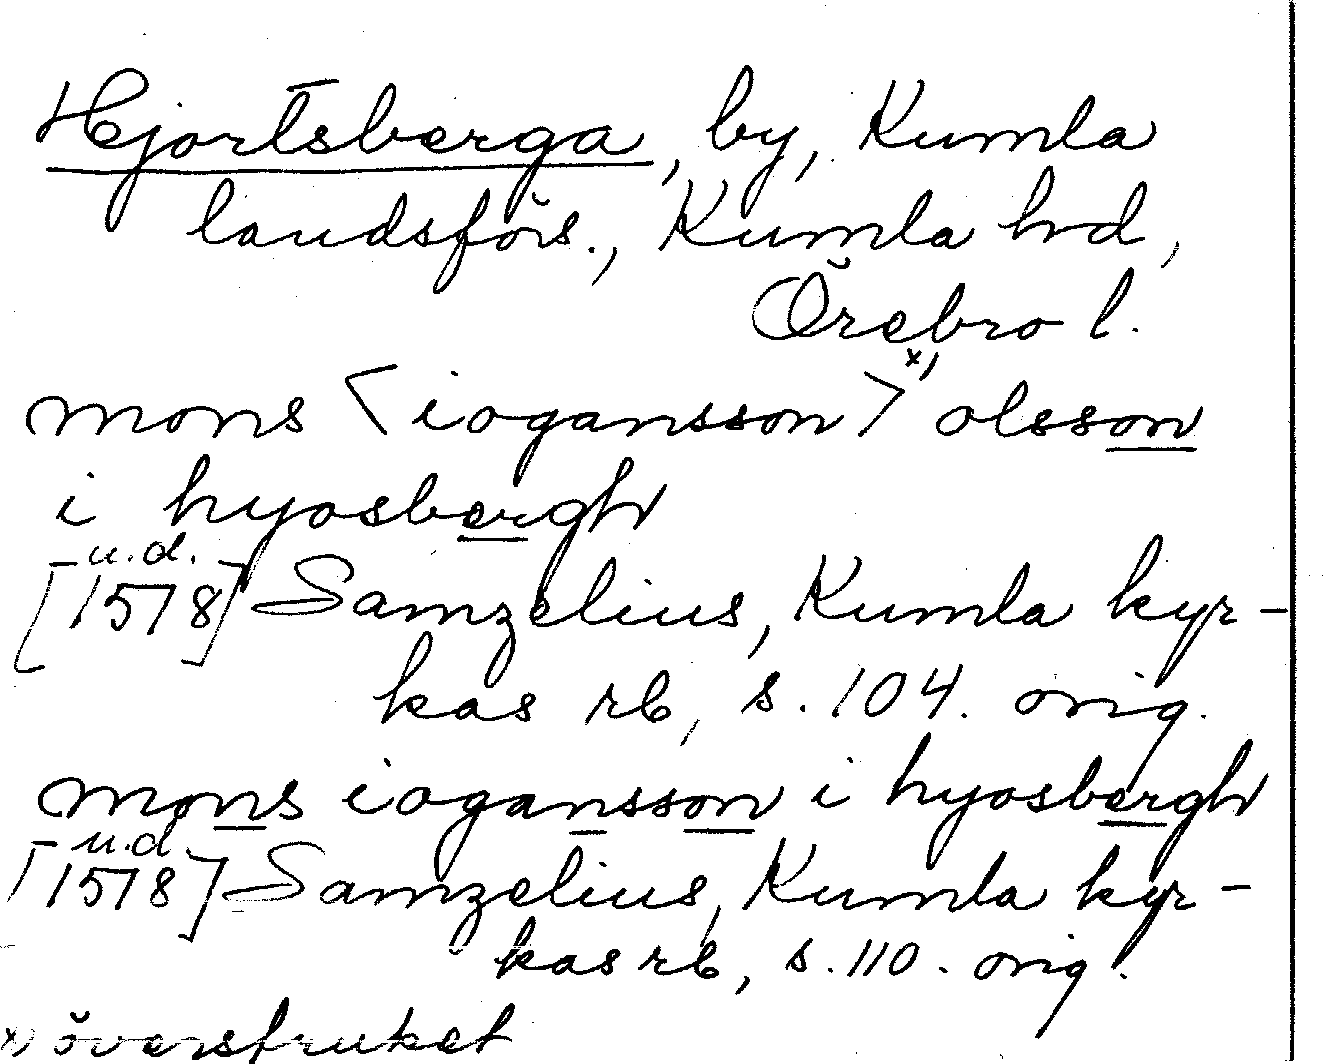 Hjortsberga, by, Kumla
landsförs., Kumla hd,
Örebro l.
mons <iogansson>x) olsson
i hyosbergh
[u.d. 1578] Samzelius, Kumla kyr-
kas rb, s. 104. orig.
mons iogansson i hyosbergh
[u.d. 1578] Samzelius, Kumla kyr-
kas rb, s. 110. orig.
x) överstruket